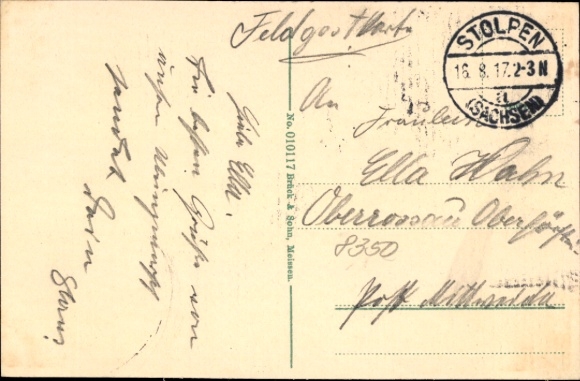 Feldpostkarte
STOLPEN
16.8.17.2-3N
a
(SACHSEN)
An
Fräulein
Ella Hahn
Oberrossau Oberförsterei
8350
Post Mittweida
No. 010117 Brück & Sohn, Meissen.
Liebe Ella.
Die besten Grüße von
sendet